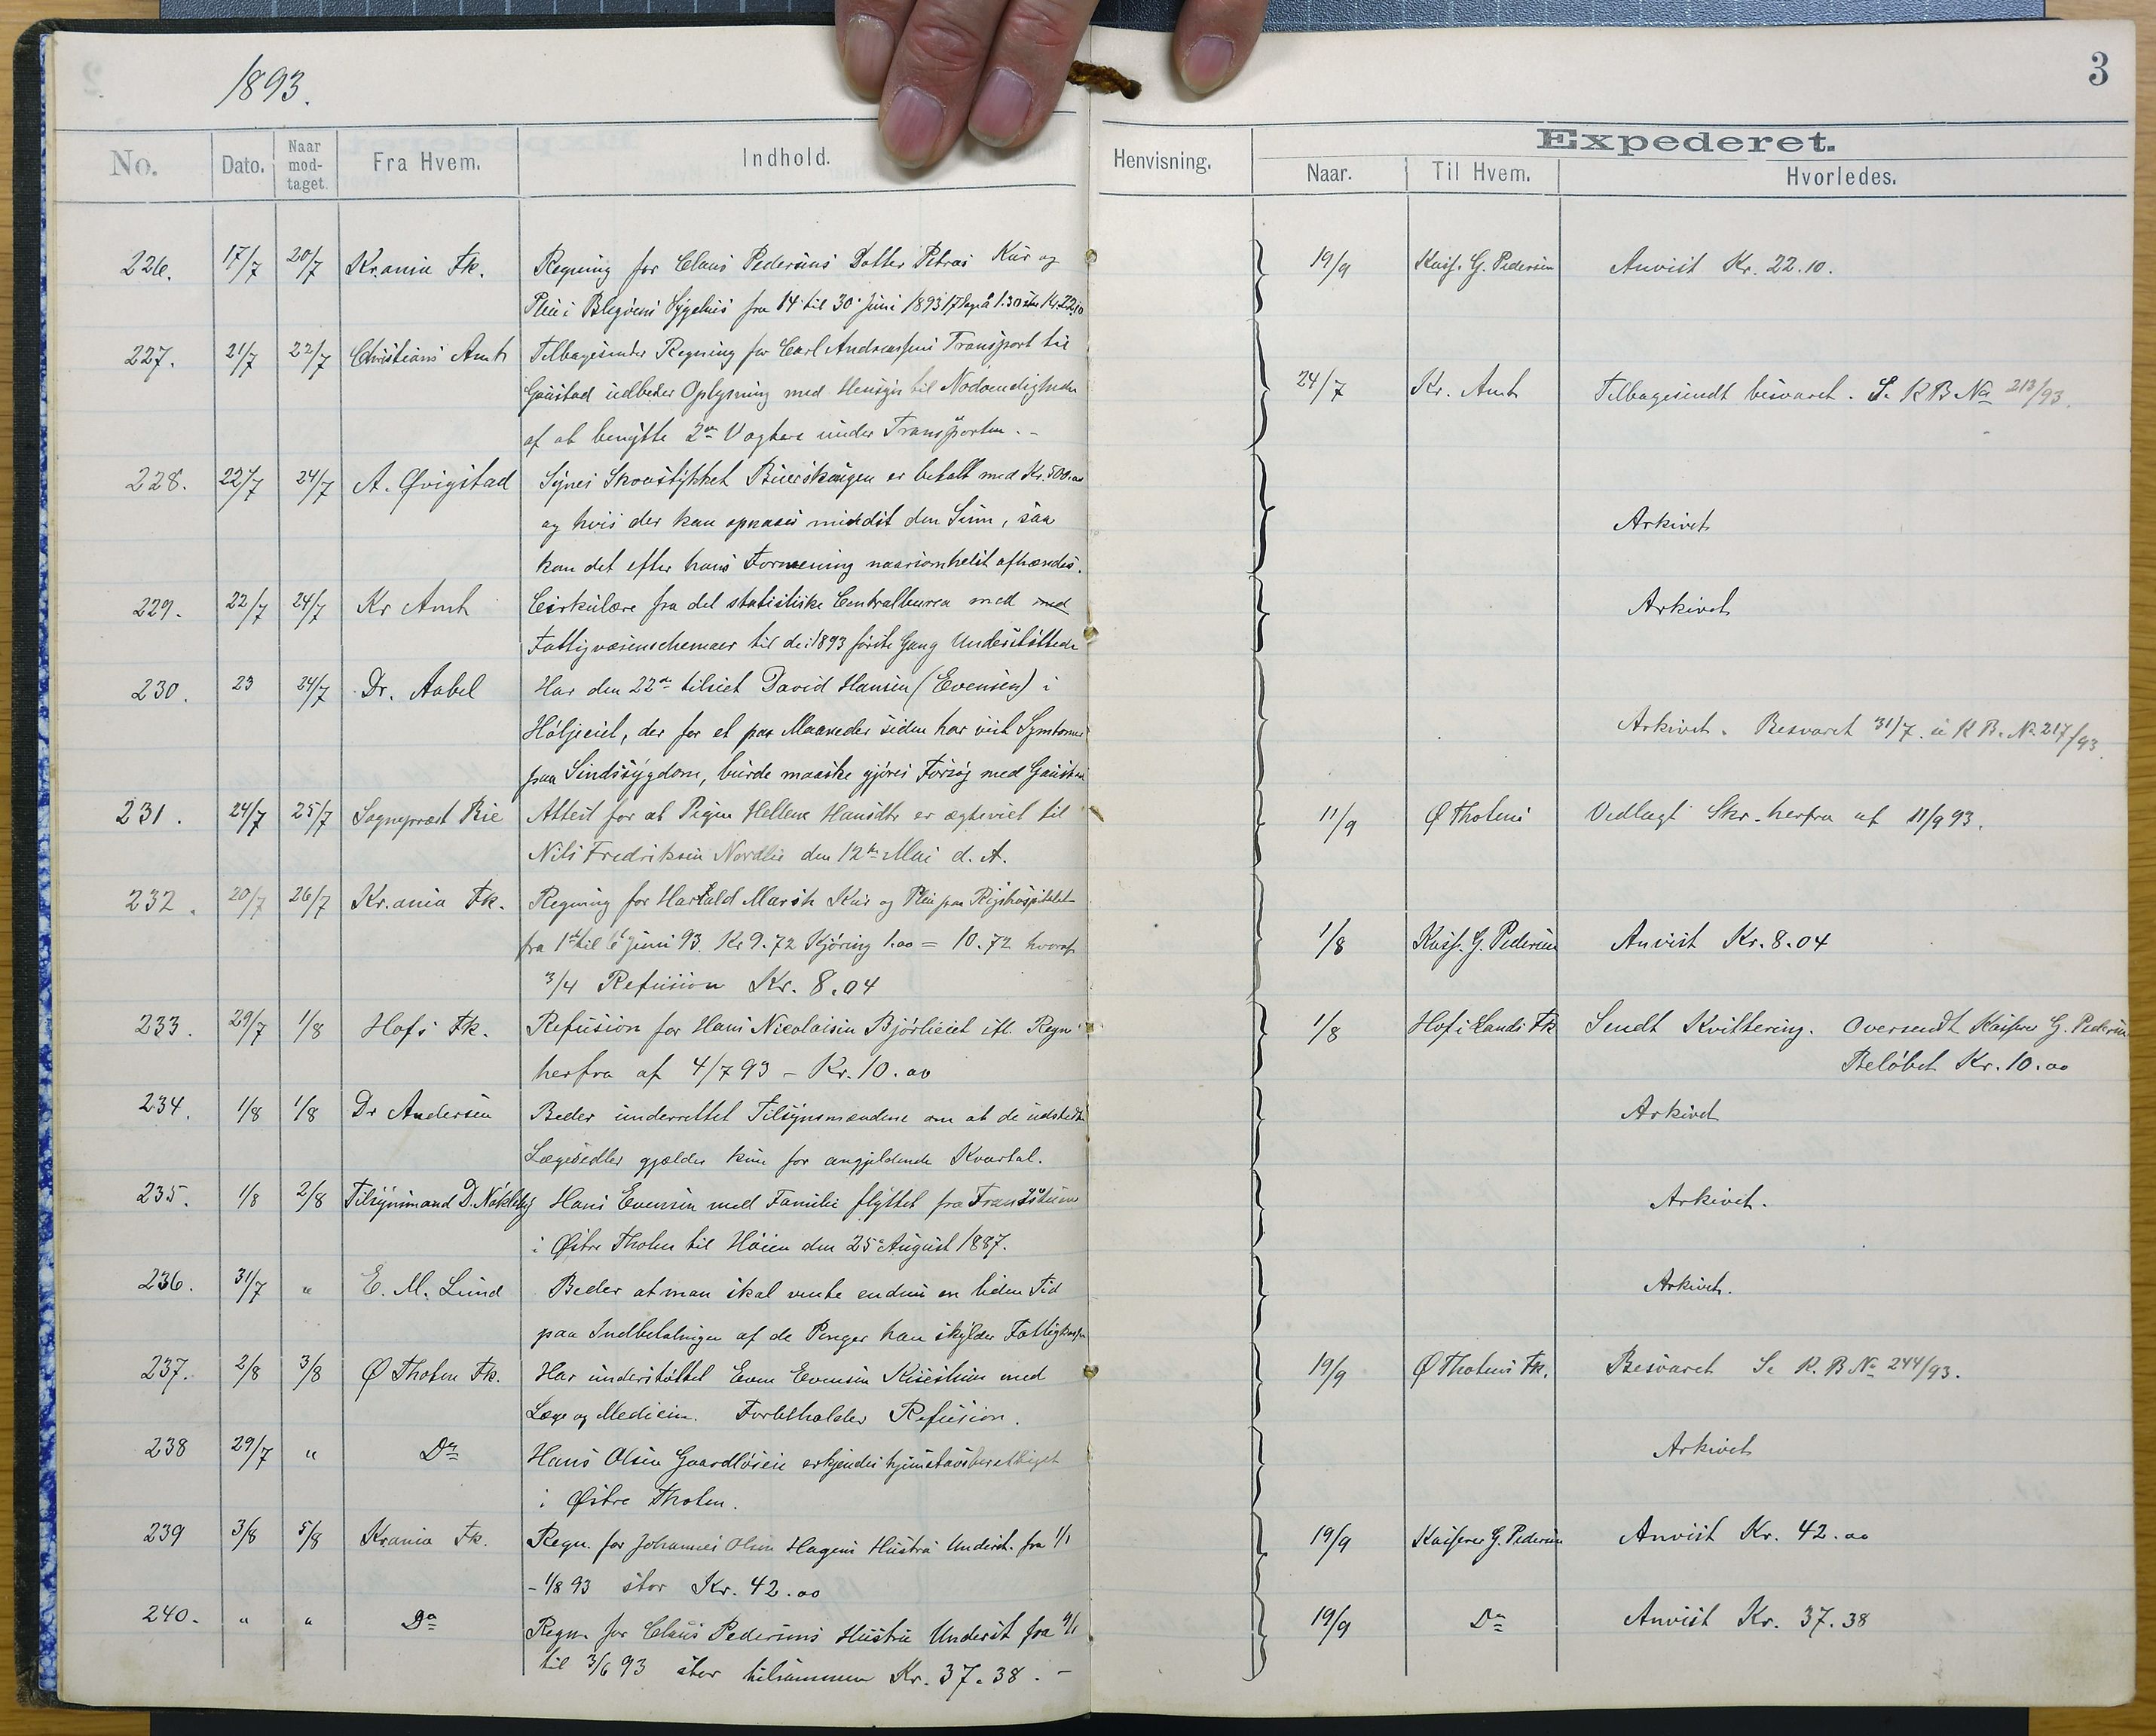 1893.
3
No. Dato. Naar mod-taget. Fra Hvem. Indhold. Henvisning. Expederet.
Naar. Til Hvem. Hvorledes.
226. 17/7 20/7 Kr.ania Fk. Regning for Claus Pedersens Datter Petras Kur og 19/9 Kass. G. Pedersen Anvist Kr. 22.10.
Pleie i Blegdens Sygehus fra 14 til 30 Juni 1893 17 Dage à 1.30 stor Kr. 22.10
227. 21/7 22/7 Christians Amt Tilbagesender Regning for Carl Andreassens Transport til
Gaustad udbeder Oplysning med Hensyn til Nødvendigheden 24/7 Kr. Amt Tilbagesendt besvaret. Se K B No 213/93.
af at benytte 2 Vogtere under Transporten. -
228. 22/7 24/7 A. Qvigstad Synes Skovstykket er betalt med Kr. 500.00
og hvis der kan opnaaes mindst den Sum, saa Arkivet
kan det efter hans Formening naarsomhelst afhændes.
229. 22/7 24/7 Kr Amt Cirkulære fra det statistiske Centralbureau med med Arkivet
Fattigvæsenschemaer til de i 1893 første Gang Understøttede
230. 23 24/7 Dr. Aabel Har den 22de tilseet David Hansen (Evensen) i
Høljeeiet, der for et par Maaneder siden har vist Symtomer Arkivet. Besvaret 31/7. se K B. No 217/93.
paa Sindssygdom, burde maaske gjøres Forsøg med Gaustad
231. 24/7 25/7 Sognepræst Rie Attest for at Pigen Hellene Hansdtr er ægteviet til 11/9 Ø Thotens Vedlagt Skr. herfra af 11/9 93.
Nils Fredriksen Nordlie den 12te Mai d. A.
232. 20/7 26/7 Kr.ania Fk. Regning for Harald Marsk Kur og Pleie paa Rigshospitalet
fra 1ste til 6te Juni 93. Kr 9.72 Kjøring 1.00 = 10.72 hvoraf 1/8 Kass. G. Pedersen Anvist Kr. 8.04
3/4 Refusion Kr. 8.04
233. 29/7 1/8 Hofs Fk. Refusion for Hans Nicolaisen Bjørlieiet ifl. Regn. 1/8 Hof i Lands Fk Sendt Kvittering. Oversendt Kasserer G. Pedersen
herfra af 4/7 93 - Kr. 10.00 Beløbet Kr. 10.00
234. 1/8 1/8 Dr Andersen Beder underrettet Tilsynsmændene om at de udstedte Arkivet
Lægesedler gjælder kun for angjeldende Kvartal.
235. 1/8 2/8 Tilsynsmand D. Nøkleby Hans Evensen med Familie flyttet fra Arkivet.
i Østre Thoten til Høien den 25de August 1887.
236. 31/7 " E. M. Lund Beder at man skal vente endnu en liden Tid Arkivet.
paa Indbetalingen af de Penger han skylder Fattigkassen
237. 2/8 3/8 Ø Thoten Fk. Har understøttet Even Evensen med 19/9 Ø Thotens Fk. Besvaret Se K. B No 244/93.
Læge og Medicin. Forbeholder Refusion.
238 29/7 " Do Hans Olsen Gaardløseie erkjendes hjemstavnsberettiget Arkivet
i Østre Thoten.
239 3/8 5/8 Krania Fk. Regn. for Johannes Olsen Hagens Hustru Underst. fra 1/1 19/9 Kasserer G. Pedersen Anvist Kr. 42.00
- 1/8 93 stor Kr. 42.00
240. " " Do Regn. for Claus Pedersens Hustru Underst fra 19/9 Do Anvist Kr. 37.38
til 3/6 93 stor tilsammen Kr. 37.38. -